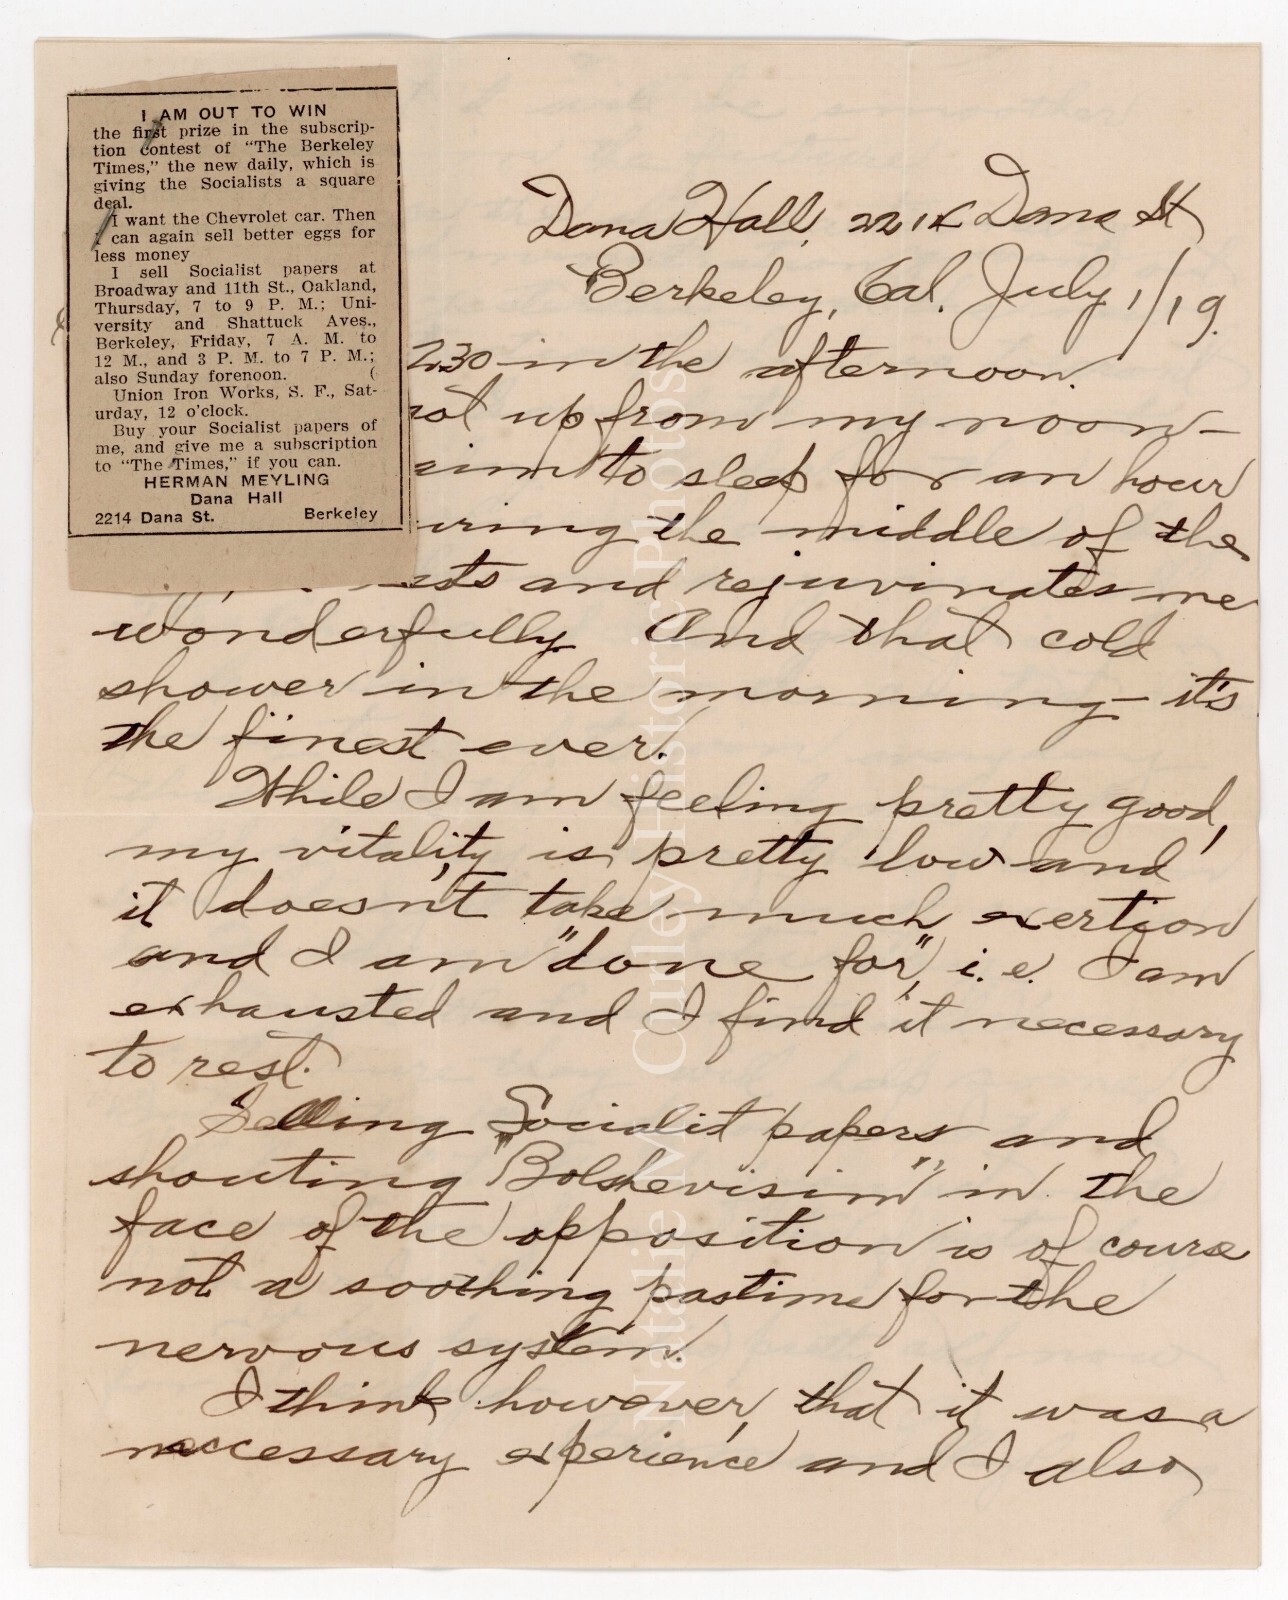 I AM OUT TO WIN
the first prize in the subscrip-
tion contest of "The Berkeley
Times," the new daily, which is
giving the Socialists a square
deal.
I want the Chevrolet car. Then
I can again sell better eggs for
less money
I sell Socialist papers at
Broadway and 11th St., Oakland,
Thursday, 7 to 9 P. M.; Uni-
versity and Shattuck Aves.,
Berkeley, Friday, 7 A. M. to
12 M., and 3 P. M. to 7 P. M.;
also Sunday forenoon. (
Union Iron Works, S. F., Sat-
urday, 12 o'clock.
Buy your Socialist papers of
me, and give me a subscription
to "The Times," if you can.
HERMAN MEYLING
Dana Hall
2214 Dana St. Berkeley
Dana Hall, 2214 Dana St
Berkeley, Cal. July 1/19.
2.30 in the afternoon.
up from my noon-
to sleep for an hour
uring the middle of the
sts and rejuvinates me
wonderfully. And that cold
shower in the morning - it's
the finest ever.
While I am feeling pretty good,
my vitality is pretty low and
it doesn't take much exertion
and I am "done for", i.e. I am
exhausted and I find it necessary
to rest.
Selling Socialist papers and
shouting "Bolshevisim" in the
face of the opposition is of course
not a soothing pastime for the
nervous system.
I think however, that it was a
neccessary experience and I also
Natalie M. Curley Historic Photos